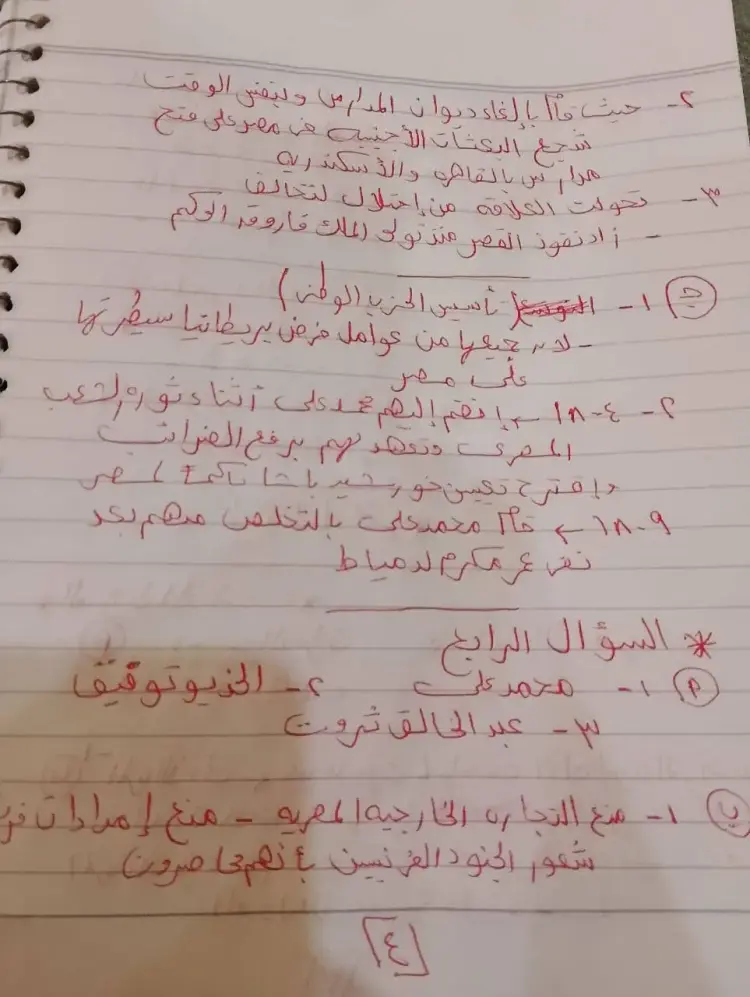 ٢- حيث قام بإلغاء ديوان المدارس وبنفس الوقت
شجع البعثات الأجنبيه فى مصر على فتح
مدارس بالقاهره والأسكندريه
٣- تحولت العلاقه من إحتلال لتحالف
- زاد نفوذ القصر منذ تولى الملك فاروق الحكم
ج ١- (تأسيس الحزب الوطنى)
- لانه جميعها من عوامل فرض بريطانيا سيطرتها
على مصر
٢- ١٨٠٤ ← إنضم إليهم محمد على أثناء ثورة الشعب
المصرى وتعهد لهم برفع الضرائب
وإقترح تعيين خورشيد باشا حاكماً لمصر
١٨٠٩ ← قام محمد على بالتخلص منهم بعد
نفى عمر مكرم لدمياط
* السؤال الرابع
أ ١- محمد على ٢- الخديو توفيق
٣- عبد الخالق ثروت
ب ١- منع التجاره الخارجيه المصريه - منع إمدادات
شعور الجنود الفرنسين بأنهم محاصرون
٤